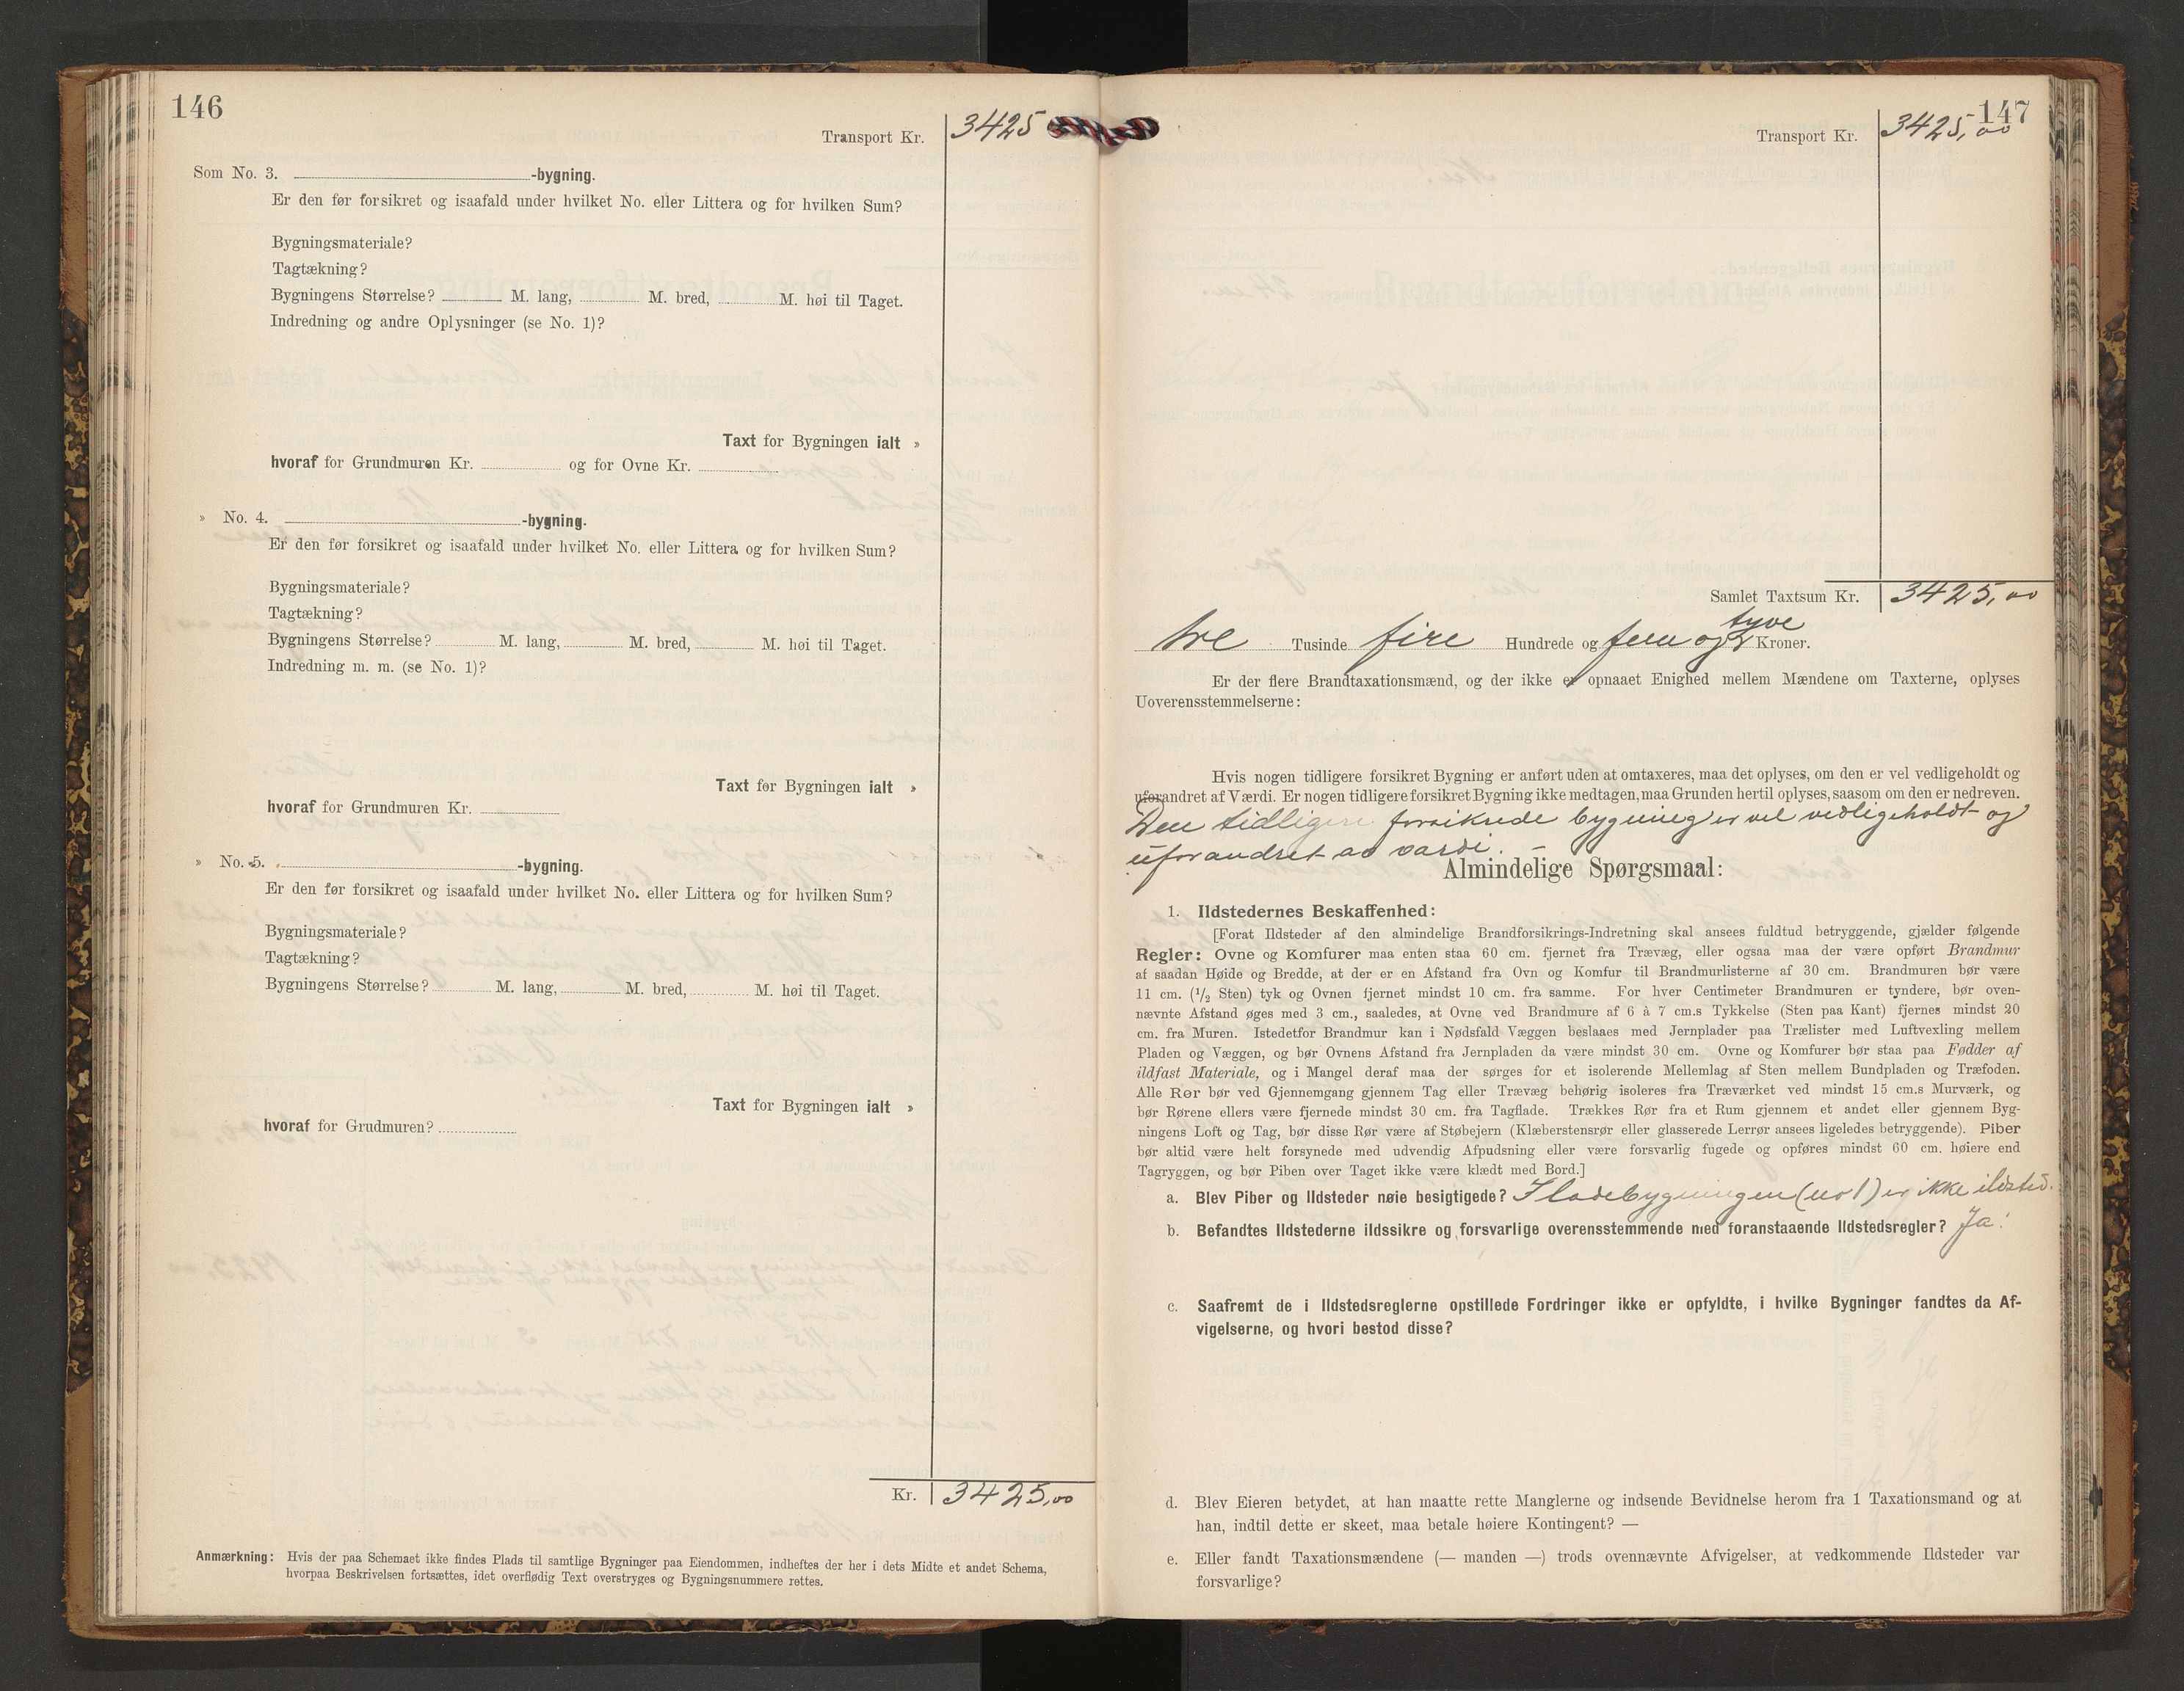 146
Transport Kr. 3425
Som No. 3. -bygning.
Er den før forsikret og isaafald under hvilket No. eller Littera og for hvilken Sum?
Bygningsmateriale?
Tagtækning?
Bygningens Størrelse? M. lang, M. bred, M. høi til Taget.
Indredning og andre Oplysninger (se No. 1)?
Taxt for Bygningen ialt »
hvoraf for Grundmuren Kr. og for Ovne Kr.
» No. 4. -bygning.
Er den før forsikret og isaafald under hvilket No. eller Littera og for hvilken Sum?
Bygningsmateriale?
Tagtækning?
Bygningens Størrelse? M. lang, M. bred, M. høi til Taget.
Indredning m. m. (se No. 1)?
Taxt for Bygningen ialt »
hvoraf for Grundmuren Kr.
» No. 5. -bygning.
Er den før forsikret og isaafald under hvilket No. eller Littera og for hvilken Sum?
Bygningsmateriale?
Tagtækning?
Bygningens Størrelse? M. lang, M. bred, M. høi til Taget.
Taxt for Bygningen ialt »
hvoraf for Grudmuren?
Kr. 3425,00
Anmærkning: Hvis der paa Schemaet ikke findes Plads til samtlige Bygninger paa Eiendommen, indheftes der her i dets Midte et andet Schema,
hvorpaa Beskrivelsen fortsættes, idet overflødig Text overstryges og Bygningsnummere rettes.
147
Transport Kr. 3425,00
Samlet Taxtsum Kr. 3425,00
tre Tusinde fire Hundrede og fem og tyve Kroner.
Er der flere Brandtaxationsmænd, og der ikke er opnaaet Enighed mellem Mændene om Taxterne, oplyses
Uoverensstemmelserne:
Hvis nogen tidligere forsikret Bygning er anført uden at omtaxeres, maa det oplyses, om den er vel vedligeholdt og
uforandret af Værdi. Er nogen tidligere forsikret Bygning ikke medtagen, maa Grunden hertil oplyses, saasom om den er nedreven.
Den tidligere forsikrede bygning er vel vedligeholdt og
uforandret av værdi. —
Almindelige Spørgsmaal:
1. Ildstedernes Beskaffenhed:
[Forat Ildsteder af den almindelige Brandforsikrings-Indretning skal ansees fuldtud betryggende, gjælder følgende
Regler: Ovne og Komfurer maa enten staa 60 cm. fjernet fra Trævæg, eller ogsaa maa der være opført Brandmur
af saadan Høide og Bredde, at der er en Afstand fra Ovn og Komfur til Brandmurlisterne af 30 cm. Brandmuren bør være
11 cm. (1/2 Sten) tyk og Ovnen fjernet mindst 10 cm. fra samme. For hver Centimeter Brandmuren er tyndere, bør oven-
nævnte Afstand øges med 3 cm., saaledes, at Ovne ved Brandmure af 6 à 7 cm.s Tykkelse (Sten paa Kant) fjernes mindst 20
cm. fra Muren. Istedetfor Brandmur kan i Nødsfald Væggen beslaaes med Jernplader paa Trælister med Luftvexling mellem
Pladen og Væggen, og bør Ovnens Afstand fra Jernpladen da være mindst 30 cm. Ovne og Komfurer bør staa paa Fødder af
ildfast Materiale, og i Mangel deraf maa der sørges for et isolerende Mellemlag af Sten mellem Bundpladen og Træfoden.
Alle Rør bør ved Gjennemgang gjennem Tag eller Trævæg behørig isoleres fra Træværket ved mindst 15 cm.s Murværk, og
bør Rørene ellers være fjernede mindst 30 cm. fra Tagflade. Trækkes Rør fra et Rum gjennem et andet eller gjennem Byg-
ningens Loft og Tag, bør disse Rør være af Støbejern (Klæberstensrør eller glasserede Lerrør ansees ligeledes betryggende). Piber
bør altid være helt forsynede med udvendig Afpudsning eller være forsvarlig fugede og opføres mindst 60 cm. høiere end
Tagryggen, og bør Piben over Taget ikke være klædt med Bord.]
a. Blev Piber og Ildsteder nøie besigtigede? I ladebygningen (no 1) er ikke ildsted.
b. Befandtes Ildstederne ildssikre og forsvarlige overensstemmende med foranstaaende Ildstedsregler? Ja.
c. Saafremt de i Ildstedsreglerne opstillede Fordringer ikke er opfyldte, i hvilke Bygninger fandtes da Af-
vigelserne, og hvori bestod disse?
d. Blev Eieren betydet, at han maatte rette Manglerne og indsende Bevidnelse herom fra 1 Taxationsmand og at
han, indtil dette er skeet, maa betale høiere Kontingent? —
e. Eller fandt Taxationsmændene (— manden —) trods ovennævnte Afvigelser, at vedkommende Ildsteder var
forsvarlige?